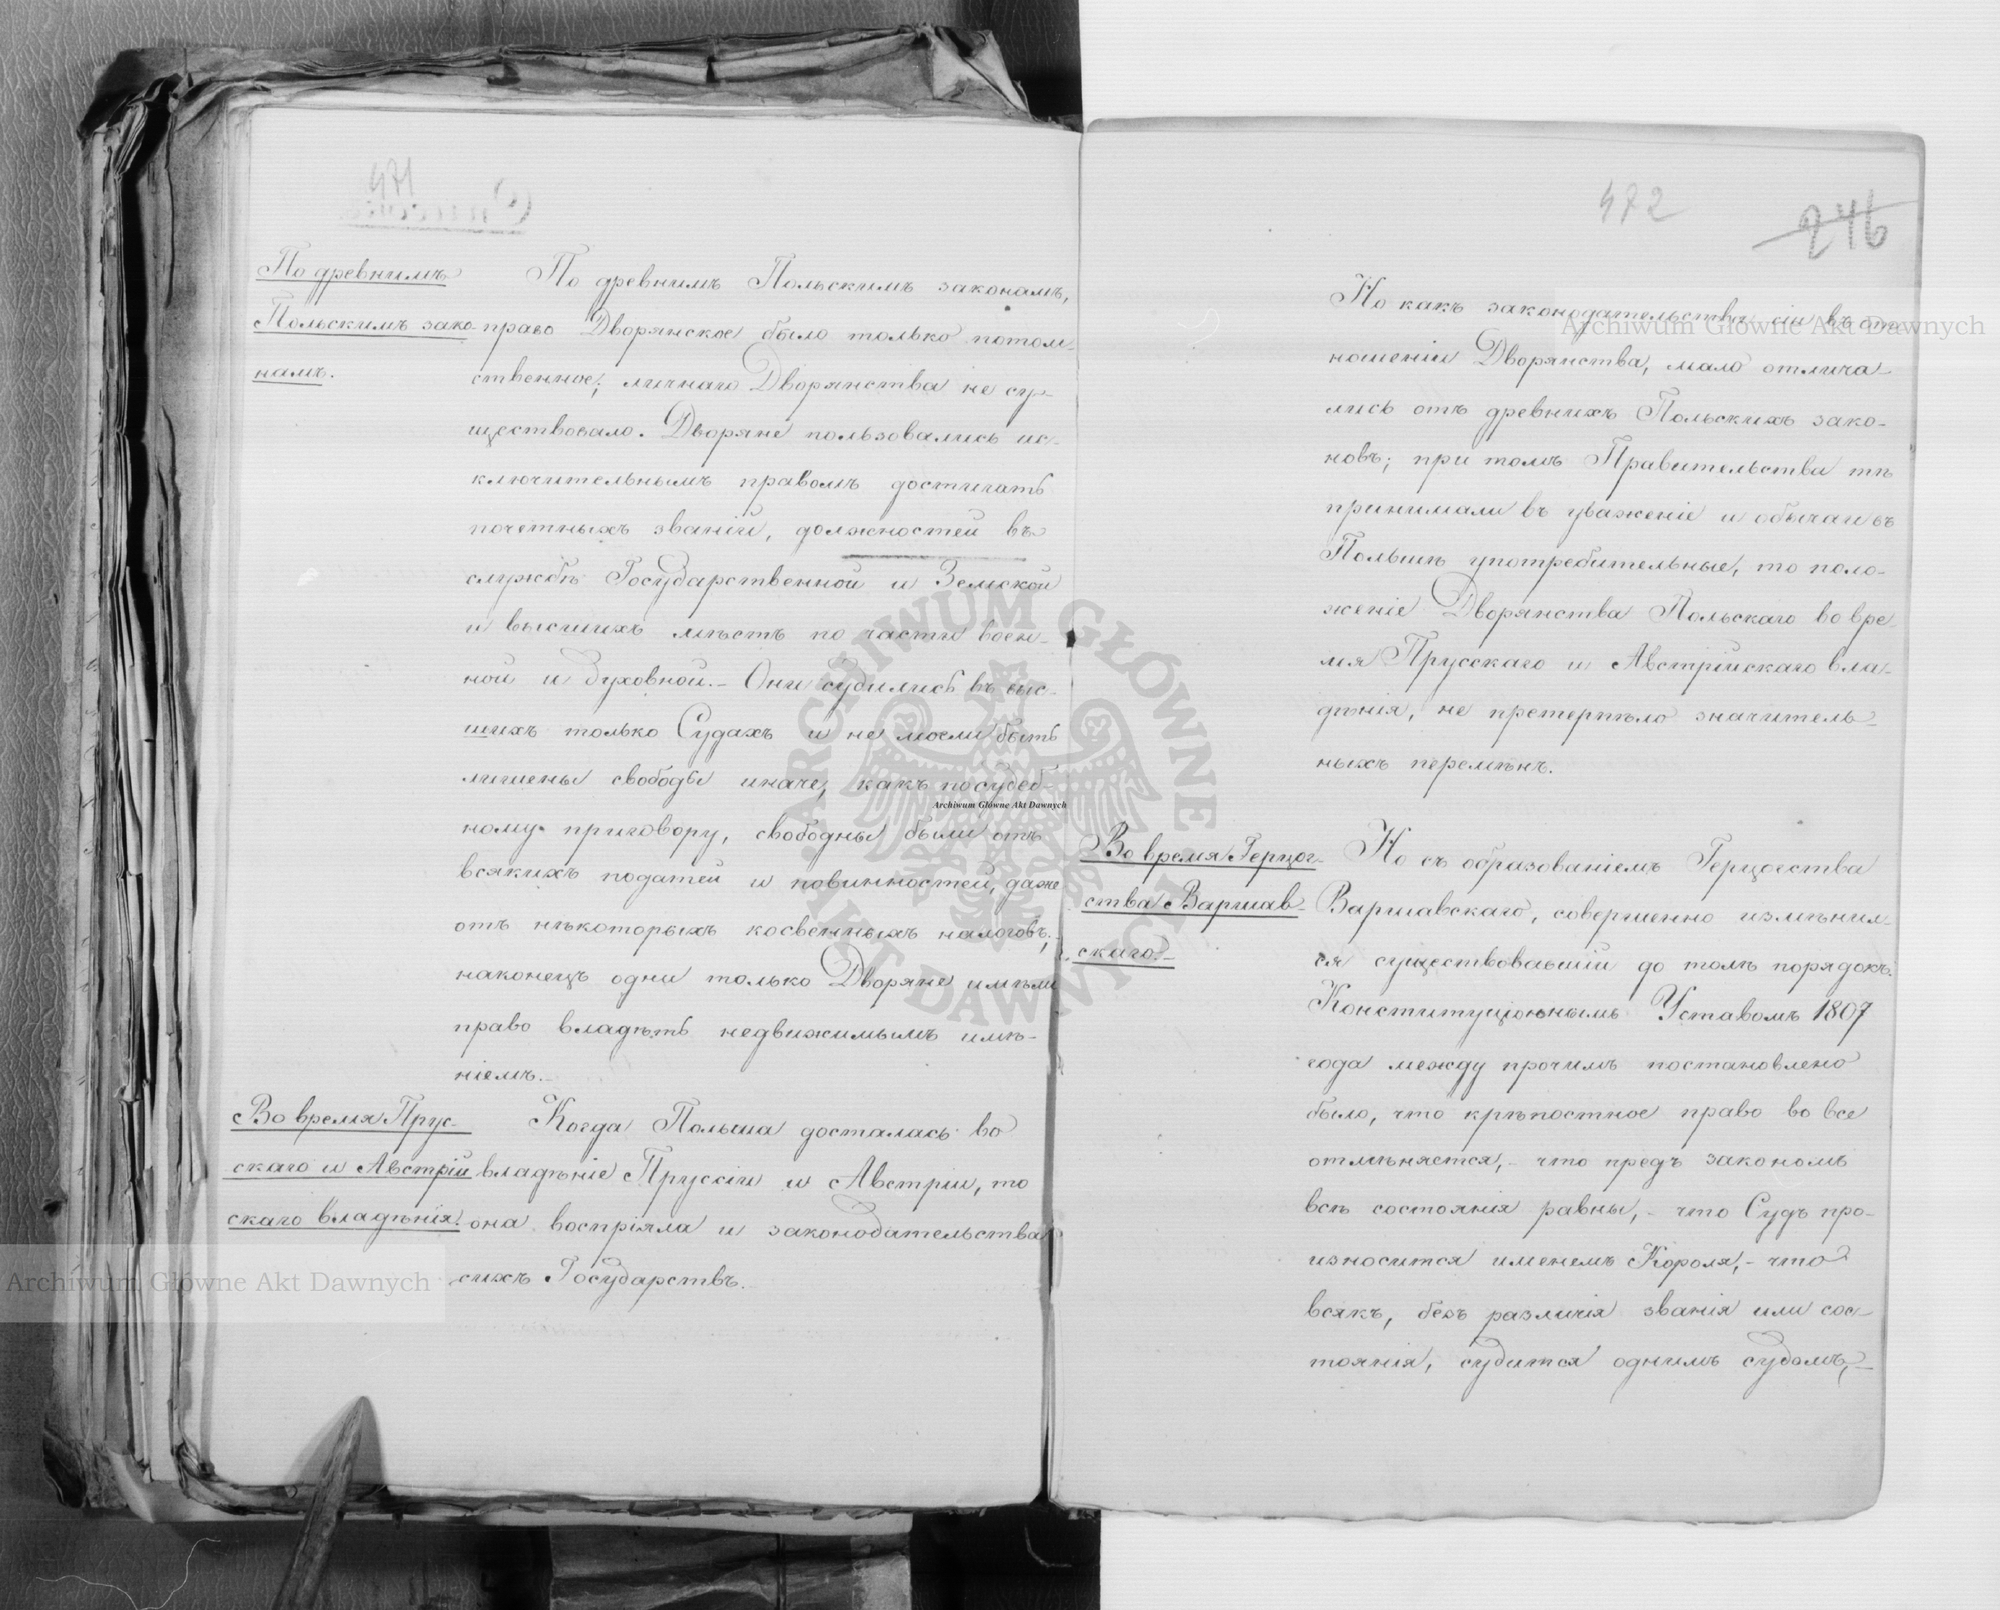 471
По древнимъ
Польскимъ зако-
намъ.
По древнимъ Польскимъ законамъ,
право Дворянское было только потом-
ственное; личнаго Дворянства не су-
ществовало. Дворяне пользовались ис-
ключительнымъ правомъ достигать
почетныхъ званій, должностей въ
службѣ Государственной и Земской
и высшихъ мѣстъ по части воен-
ной и Духовной. - Они судились въ выс-
шихъ только Судахъ и не могли быть
лишены свободы иначе, какъ по судеб-
ному приговору, свободны были отъ
всякихъ податей и повинностей, даже
отъ нѣкоторыхъ косвенныхъ налоговъ;
наконецъ одни только Дворяне имѣли
право владѣть недвижимымъ имѣ-
ніемъ. -
Во время Прус-
скаго и Австрій
скаго владѣнія.
Когда Польша досталась во
владѣніе Пруссіи и Австріи, то
она воспріяла и законодательства
сихъ Государствъ.
472
246
Но какъ законодательства сіи въ от-
ношеніи Дворянства, мало отлича-
лись отъ древнихъ Польскихъ зако-
новъ; при томъ Правительства тѣ
принимали въ уваженіе и обычаи въ
Польшѣ употребительные, то поло-
женіе Дворянства Польскаго во вре-
мя Прусскаго и Австрійскаго вла-
дѣнія, не претерпѣло значитель-
ныхъ перемѣнъ.
Во время Герцог-
ства Варшав-
скаго. -
Но съ образованіемъ Герцогства
Варшавскаго, совершенно измѣнил-
ся существовавшій до толѣ порядокъ.
Конституціоннымъ Уставомъ 1807
года между прочимъ постановлено
было, что крѣпостное право во все
отмѣняется, - что предъ закономъ
всѣ состоянія равны, - что Судъ про-
износится именемъ Короля, - что
всякъ, безъ различія званія или сос-
тоянія, судится однимъ судомъ, -
Archiwum Główne Akt Dawnych
Archiwum Główne Akt Dawnych
Archiwum Główne Akt Dawnych
ARCHIWUM GŁÓWNE AKT DAWNYCH